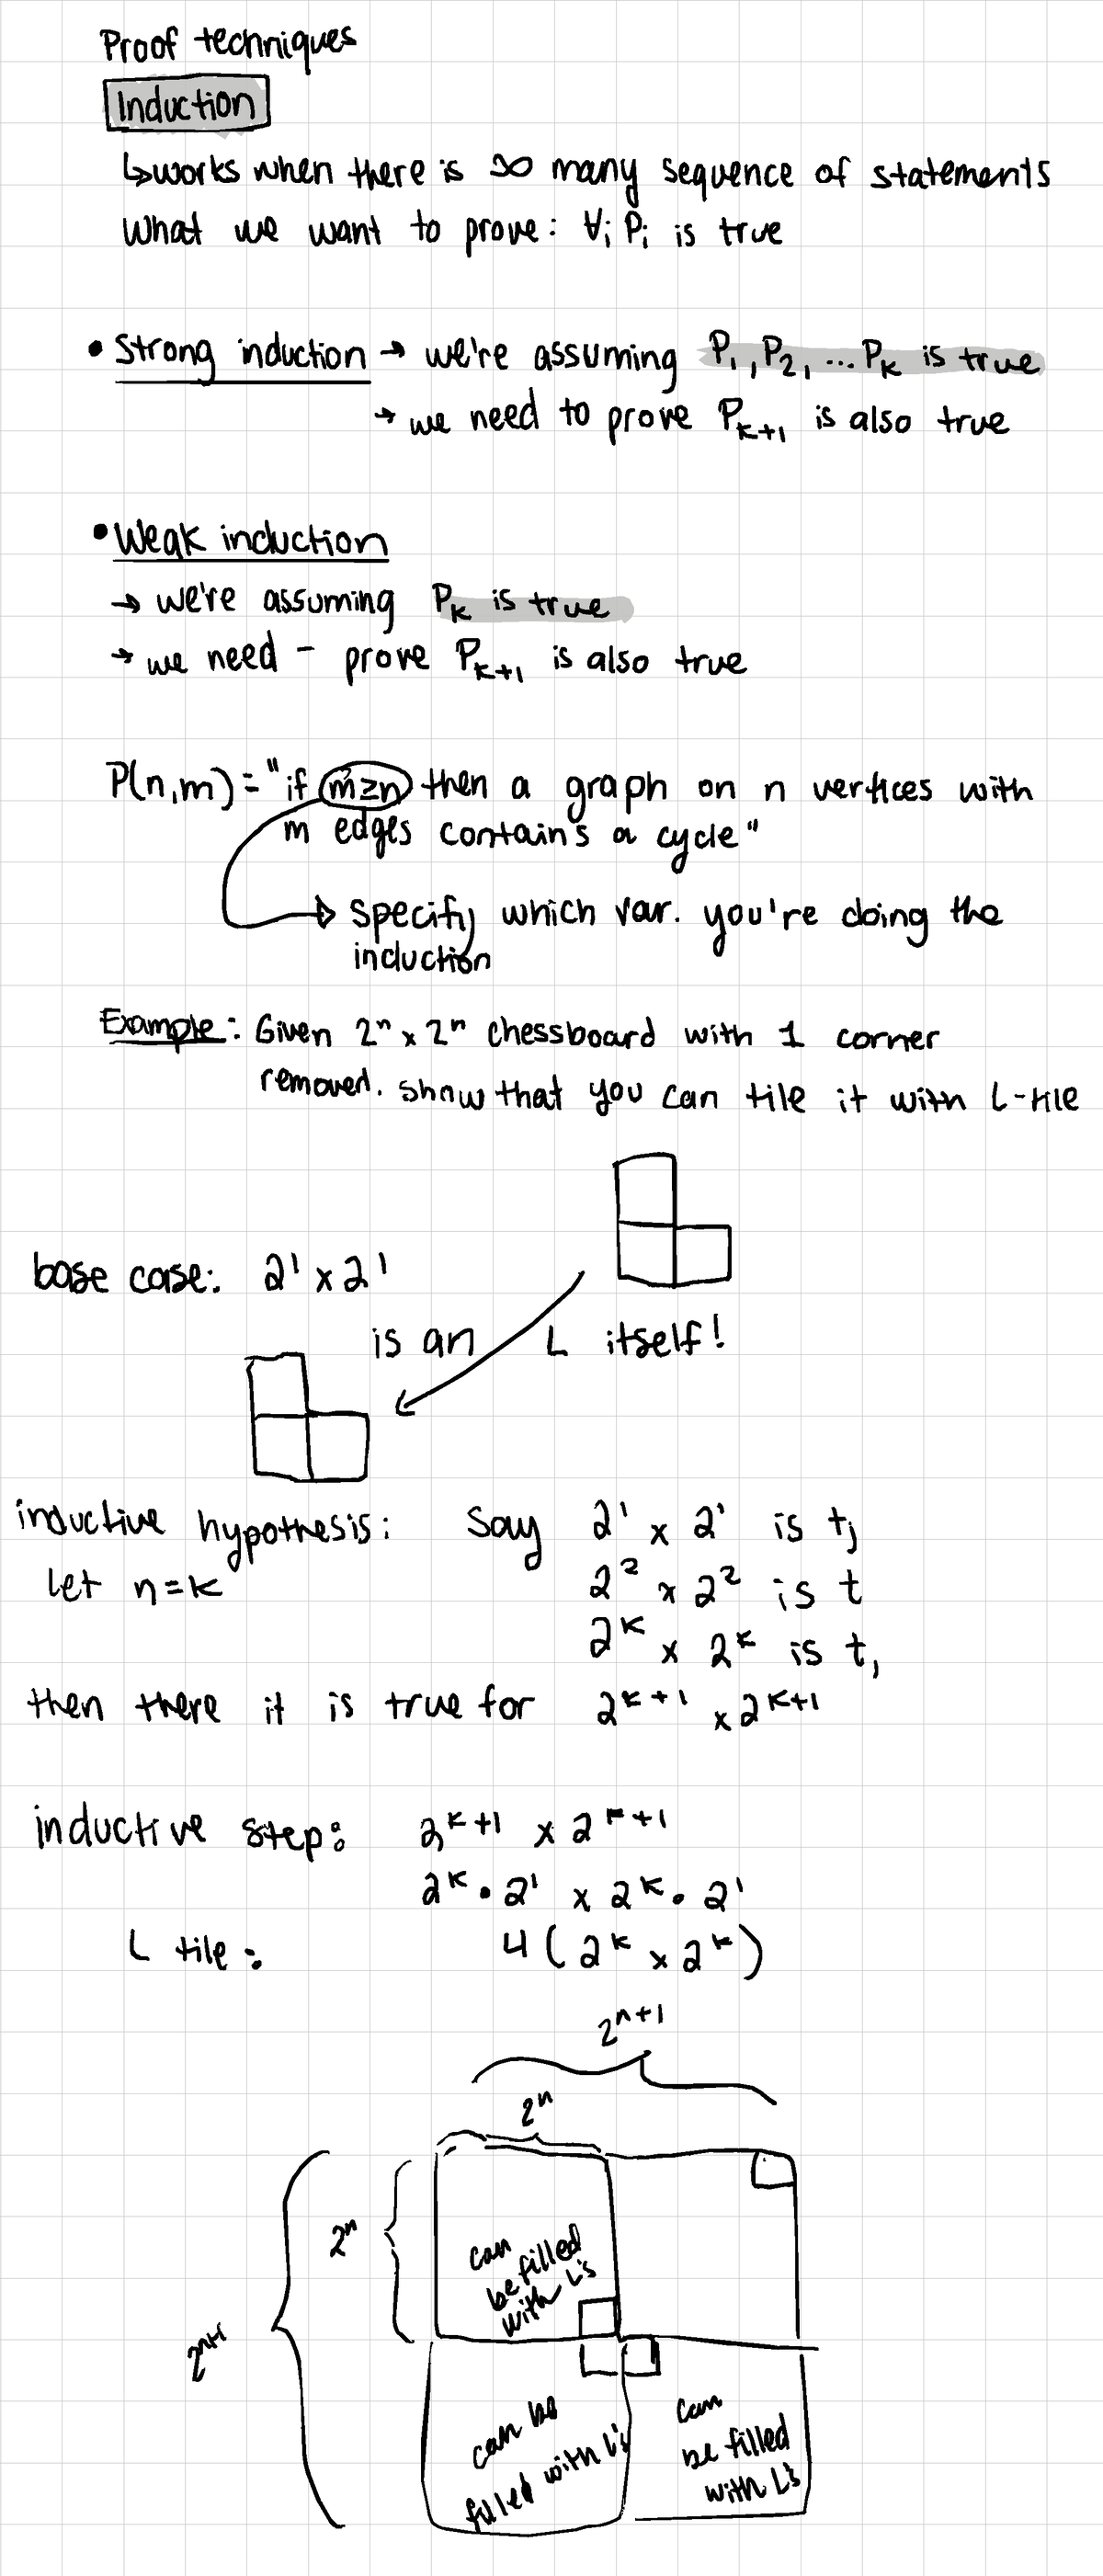 Proof techniques
Induction
↳works when there is ∞ many sequence of statements
What we want to prove: ∀i Pi is true
• Strong induction → we're assuming P1, P2, ... Pk is true
→ we need to prove Pk+1 is also true
• Weak induction
→ we're assuming Pk is true
→ we need - prove Pk+1 is also true
P(n,m) = "if m≥n then a graph on n vertices with
m edges contains a cycle"
specify which var. you're doing the
induction
Example: Given 2ⁿ x 2ⁿ chessboard with 1 corner
removed. show that you can tile it with L-tile
base case: 2¹ x 2¹
is an L itself!
inductive hypothesis: Say 2¹ x 2¹ is t,
let n=k 2² x 2² is t
2ᵏ x 2ᵏ is t,
then there it is true for 2ᵏ⁺¹ x 2ᵏ⁺¹
inductive step: 2ᵏ⁺¹ x 2ᵏ⁺¹
2ᵏ • 2¹ x 2ᵏ • 2¹
L tile: 4(2ᵏ x 2ᵏ)
2ⁿ⁺¹
2ⁿ
2ⁿ
can
be filled
with L's
2ⁿ⁺¹
can be
filled with L's
can
be filled
with L's